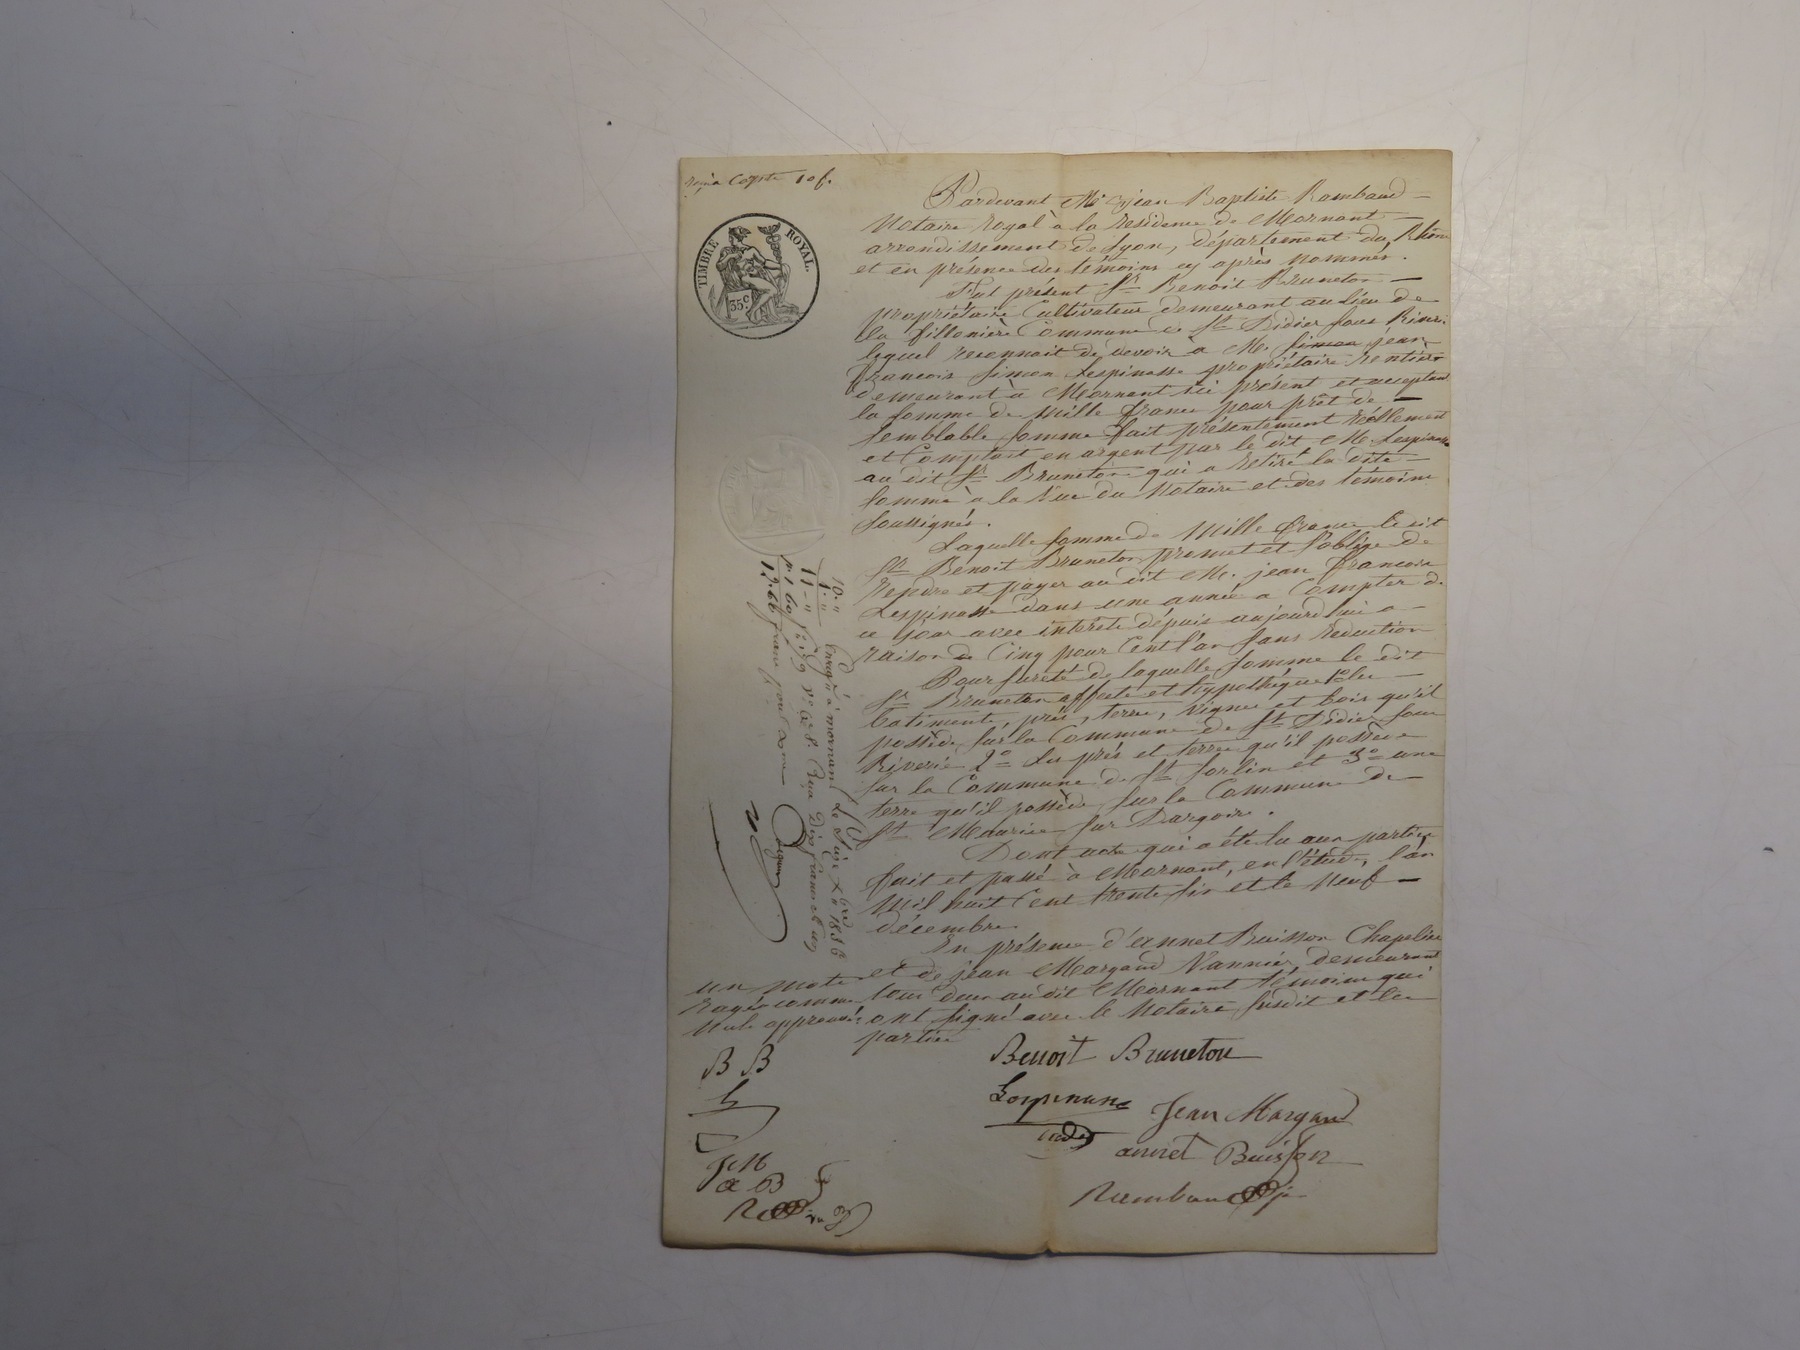 Copie 10 f.
TIMBRE ROYAL.
35 c
Pardevant Me Jean Baptiste Rambaud
Notaire Royal à la residence de Mornant
arrondissement de Lyon, département du Rhône
et en présence des témoins cy après nommés.
Fut présent Sr Benoit Bruneton
propriétaire Cultivateur demeurant au lieu de
la fillonière Commune de St Didier sous Riverie
lequel reconnait de devoir à M. Simon jean
francois Simon Lespinasse propriétaire rentier
demeurant à Mornant ici présent et acceptant
la somme de Mille francs pour prêt de
semblable somme fait présentement réellement
et Comptant en argent par le dit M. Lespinasse
au dit Sr Bruneton qui a retiré la dite
somme à la Vue du Notaire et des témoins
soussignés.
Laquelle somme de Mille francs le dit
Sr Benoit Bruneton promet et s'oblige de
rendre et payer au dit M. jean francois
Lespinasse dans une année a Compter de
ce jour avec intérêts depuis aujourd'hui a
raison de Cinq pour Cent l'an sans reduction
Pour sureté de laquelle somme le dit
Sr Bruneton affecte et hypothéque 1° les
batiments, prés, terres, vignes et bois qu'il
possède sur la Commune de St Didier sous
Riverie 2° Les prés et terres qu'il possède
sur la Commune de St Sorlin et 3° une
terre qu'il possède sur la Commune de
St Maurice sur Dargoire.
Dont acte qui a été lu aux parties
fait et passé à Mornant, en l'étude, l'an
Mil huit Cent trente six et le Neuf
décembre
En présence d'annet Buisson Chapelier
et de jean Margand Vannier, demeurant
tous deux au dit Mornant témoins qui
ont signé avec le Notaire susdit et les
parties
un mot
rayé comme
Nul approuvé
B B
L
J M
a B
R
Benoit Bruneton
Lespinasse
Jean Margand
annet Buisson
Rambaud
10 · "
1 · "
11 - "
p. 1 · 60
12 · 66
Enregé à mornant Le Seize Xbre 1836
Reçu Dix francs